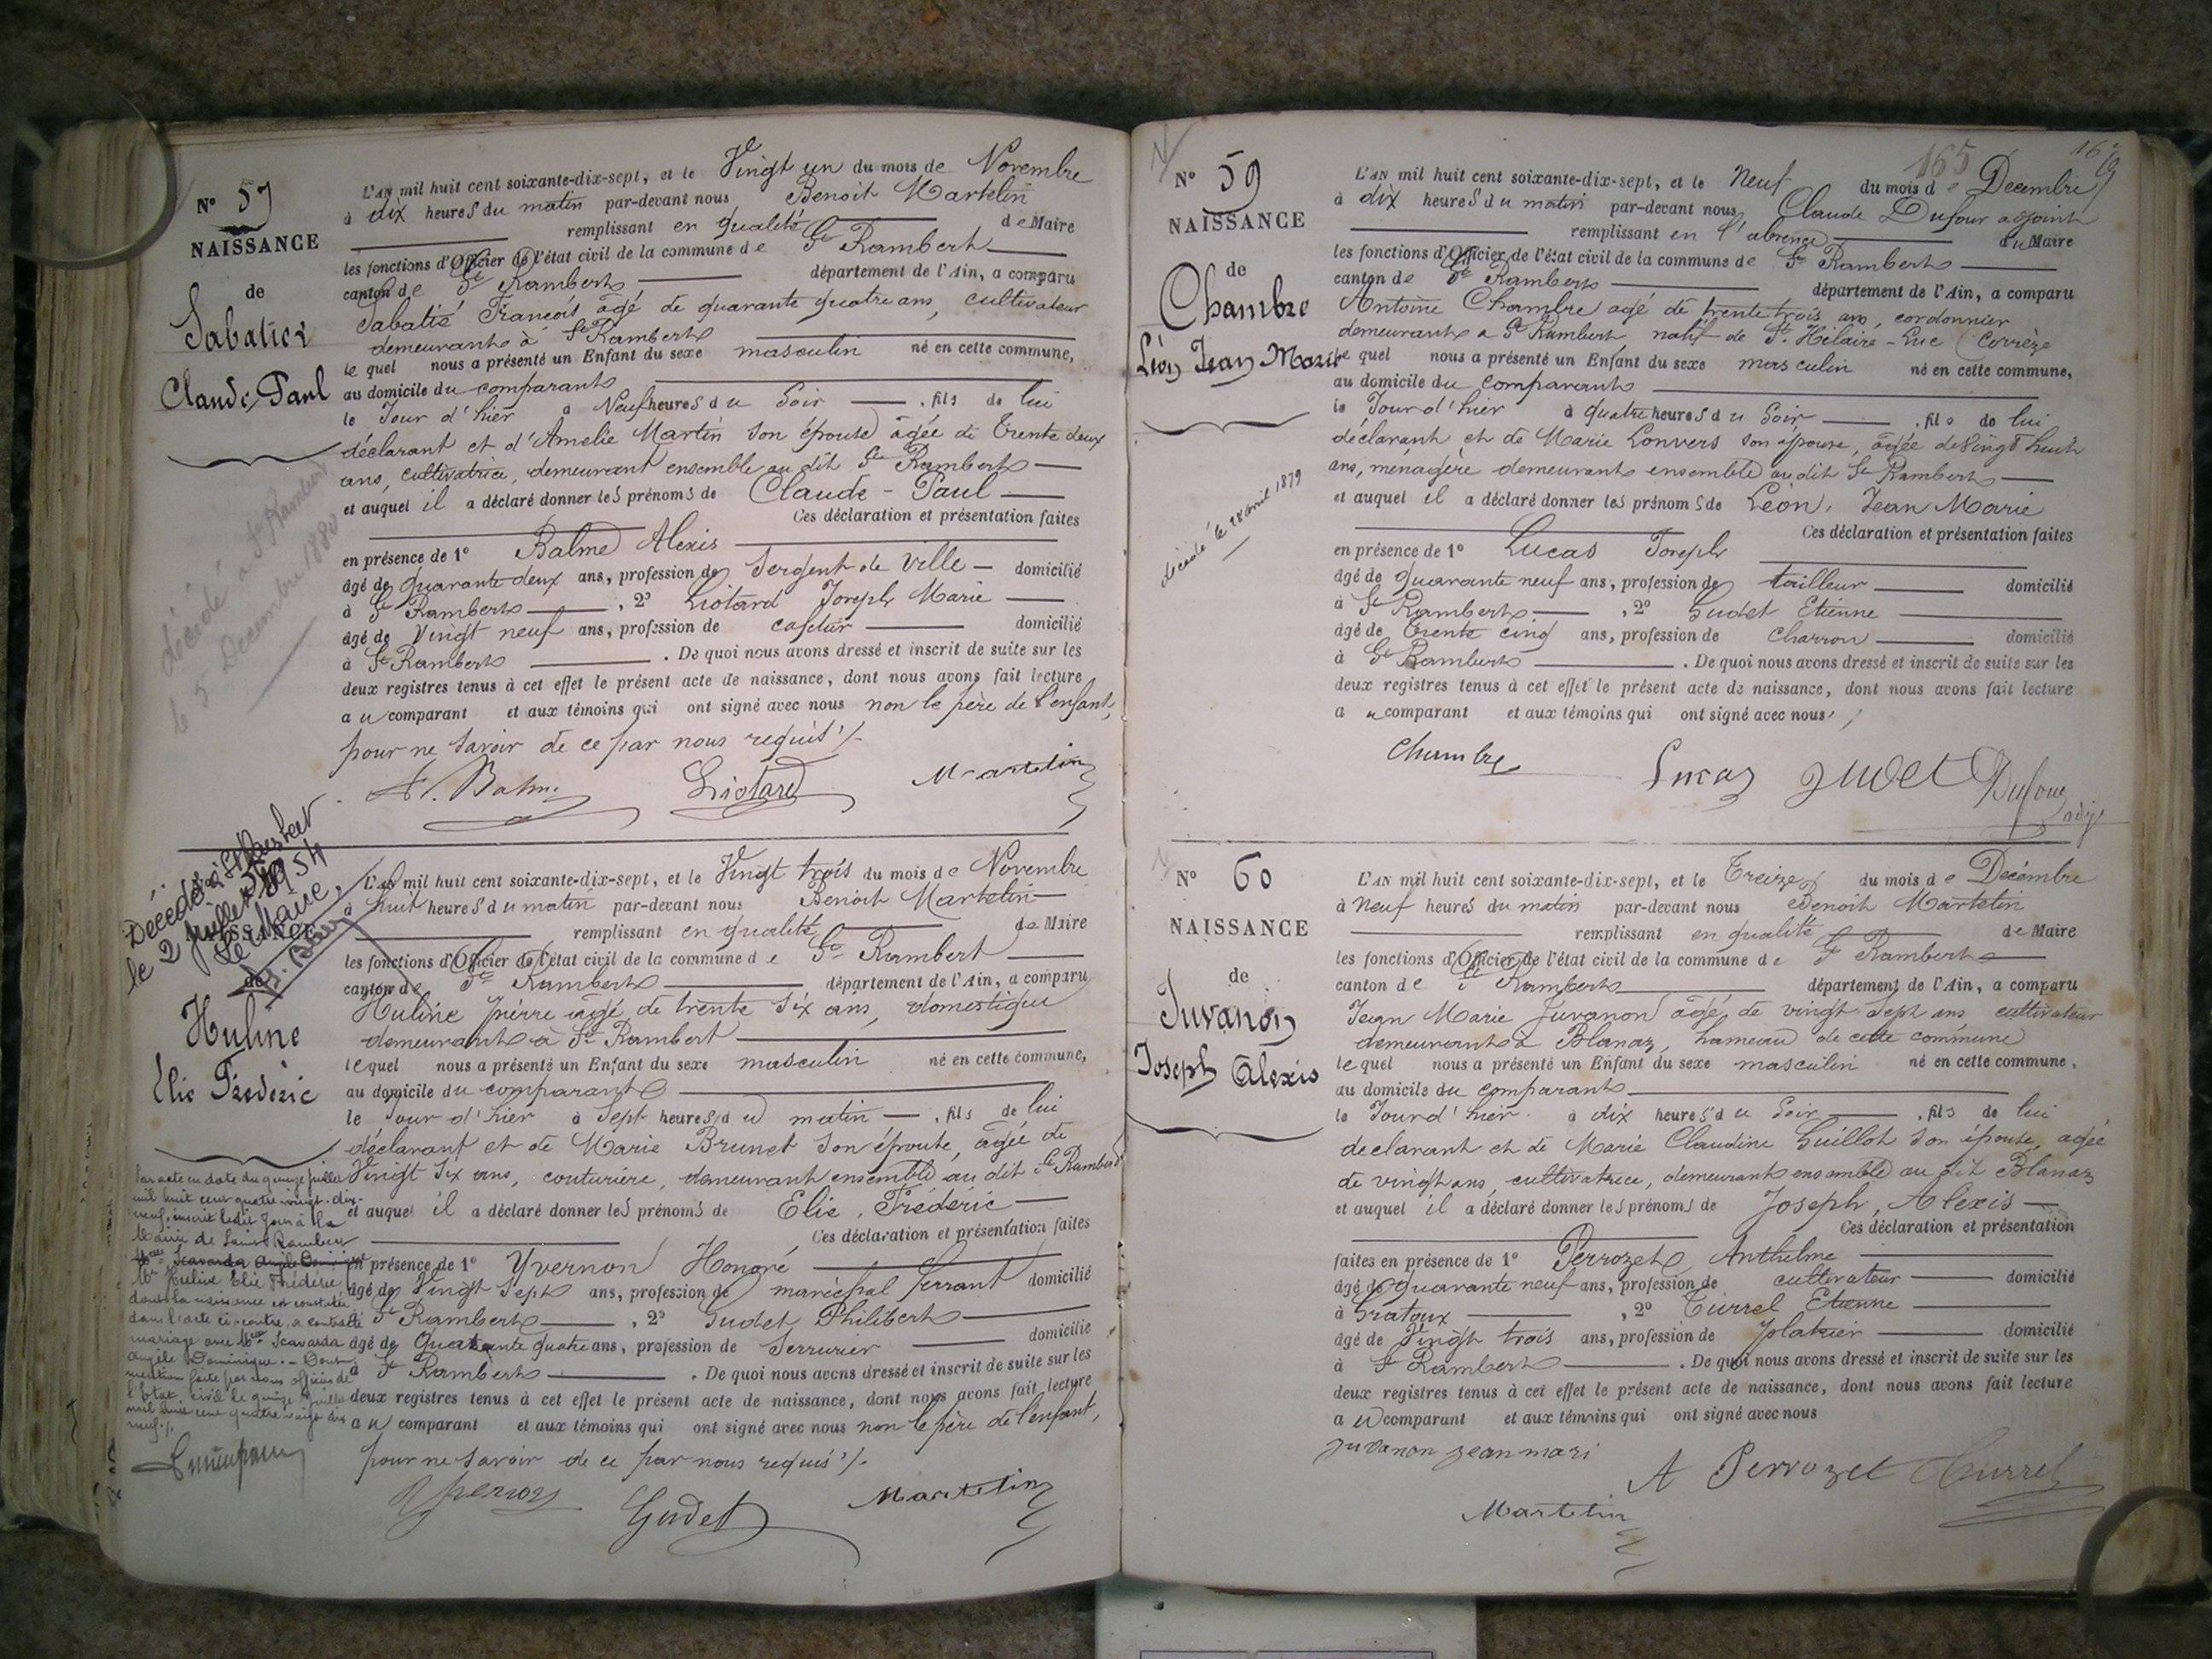 N° 57
NAISSANCE
de
Sabatier
Claude, Paul
décédé à St Rambert
le 5 Decembre 1880
L'AN mil huit cent soixante-dix-sept, et le Vingt un du mois de Novembre
à dix heures du matin par-devant nous Benoit Martelin
remplissant en qualité de Maire
les fonctions d'Officier de l'état civil de la commune de St Rambert
canton de St Rambert département de l'Ain, a comparu
Sabatié François âgé de quarante quatre ans, cultivateur
demeurant à St Rambert
lequel nous a présenté un Enfant du sexe masculin né en cette commune,
au domicile du comparant
le Jour d'hier à Neuf heures du Soir, fils de lui
déclarant et d'Amelie Martin son épouse âgée de Trente deux
ans, cultivatrice, demeurant ensemble au dit St Rambert
et auquel il a déclaré donner les prénoms de Claude-Paul
Ces déclaration et présentation faites
en présence de 1° Balme Alexis
âgé de quarante deux ans, profession de Sergent de Ville domicilié
à St Rambert, 2° Liotard Joseph Marie
âgé de Vingt neuf ans, profession de domicilié
à St Rambert. De quoi nous avons dressé et inscrit de suite sur les
deux registres tenus à cet effet le présent acte de naissance, dont nous avons fait lecture
au comparant et aux témoins qui ont signé avec nous non le père de l'enfant,
pour ne savoir de ce par nous requis ./.
Liotard Martelin
Décédé à St Rambert
le 2 Juillet 1954
Le Maire,
NAISSANCE
de
Huline
Élie Fréderic
L'AN mil huit cent soixante-dix-sept, et le Vingt trois du mois de Novembre
à huit heures du matin par-devant nous Benoit Martelin
remplissant en qualité de Maire
les fonctions d'Officier de l'état civil de la commune de St Rambert
canton de St Rambert département de l'Ain, a comparu
Huline pierre âgé de trente six ans, domestique
demeurant à St Rambert
lequel nous a présenté un Enfant du sexe masculin né en cette commune,
au domicile du comparant
le Jour d'hier à Sept heures du matin, fils de lui
déclarant et de Marie Brunet son épouse, âgée de
Vingt six ans, couturière, demeurant ensemble au dit St Rambert
et auquel il a déclaré donner les prénoms de Elie, Fréderic
Ces déclaration et présentation faites
en présence de 1° Yvernon Honoré
âgé de Vingt Sept ans, profession de maréchal ferrant domicilié
St Rambert, 2° Gudet Philibert
âgé de Quarante quatre ans, profession de Serrurier domicilié
à St Rambert. De quoi nous avons dressé et inscrit de suite sur les
deux registres tenus à cet effet le présent acte de naissance, dont nous avons fait lecture
au comparant et aux témoins qui ont signé avec nous non le père de l'enfant,
pour ne savoir de ce par nous requis ./.
Gudet Martelin
Par acte en date du quinze juillet
mil huit cent quatre vingt-dix-
neuf, inscrit ledit jour à la
Mairie de Saint Rambert
Mr Huline Elie Frédéric
dont la naissance est constatée
dans l'acte ci-contre, a contracté
mariage avec Mlle Scavarda
Angèle Dominique. - Dont
mention faite par nous officier de
l'état civil le quinze juillet
mil huit cent quatre vingt dix
neuf ./.
165
N° 59
NAISSANCE
de
Chambre
Léon Jean Marie
décédé le 28 avril 1879
L'AN mil huit cent soixante-dix-sept, et le Neuf du mois de Decembre
à dix heures du matin par-devant nous, Claude Dufour adjoint
remplissant en l'absence du Maire
les fonctions d'Officier de l'état civil de la commune de St Rambert
canton de St Rambert département de l'Ain, a comparu
Antoine Chambre agé de trente trois ans, cordonnier
demeurant a St Rambert, natif de St. Hilaire-Luc (Corrèze
le quel nous a présenté un Enfant du sexe masculin né en cette commune,
au domicile du comparant
le Jour d'hier à quatre heures du Soir, fils de lui
déclarant et de Marie Lonvers son épouse, âgée de Vingt huit
ans, ménagère demeurant ensemble au dit St Rambert
et auquel il a déclaré donner les prénoms de Léon, Jean Marie
Ces déclaration et présentation faites
en présence de 1° Lucas Joseph
âgé de quarante neuf ans, profession de tailleur domicilié
à St Rambert, 2° Gudet Etienne
âgé de Trente cinq ans, profession de charron domicilié
à St Rambert. De quoi nous avons dressé et inscrit de suite sur les
deux registres tenus à cet effet le présent acte de naissance, dont nous avons fait lecture
au comparant et aux témoins qui ont signé avec nous
Chambre Lucas Gudet Dufour
adj
N° 60
NAISSANCE
de
Juvanon
Joseph Alexis
L'AN mil huit cent soixante-dix-sept, et le Treize du mois de Decémbre
à Neuf heures du matin par-devant nous Benoit Martelin
remplissant en qualité de Maire
les fonctions d'Officier de l'état civil de la commune de St Rambert
canton de St Rambert département de l'Ain, a comparu
Jean Marie Juvanon âgé de vingt Sept ans cultivateur
demeurant à Blanaz, hameau de cette commune
lequel nous a présenté un Enfant du sexe masculin né en cette commune,
au domicile du comparant
le Jour d'hier à dix heures du Soir, fils de lui
declarant et de Marie Claudine Guillot son épouse, agée
de vingt ans, cultivatrice, demeurant ensemble au dit Blanaz
et auquel il a déclaré donner les prénoms de Joseph, Alexis
Ces déclaration et présentation
faites en présence de 1° Perrozet Anthelme
âgé de quarante neuf ans, profession de cultivateur domicilié
à Gratoux, 2° Turrel Etienne
âgé de Vingt trois ans, profession de platrier domicilié
à St Rambert. De quoi nous avons dressé et inscrit de suite sur les
deux registres tenus à cet effet le présent acte de naissance, dont nous avons fait lecture
au comparant et aux témoins qui ont signé avec nous
juvanon jean mari
A Perrozet Turrel
Martelin